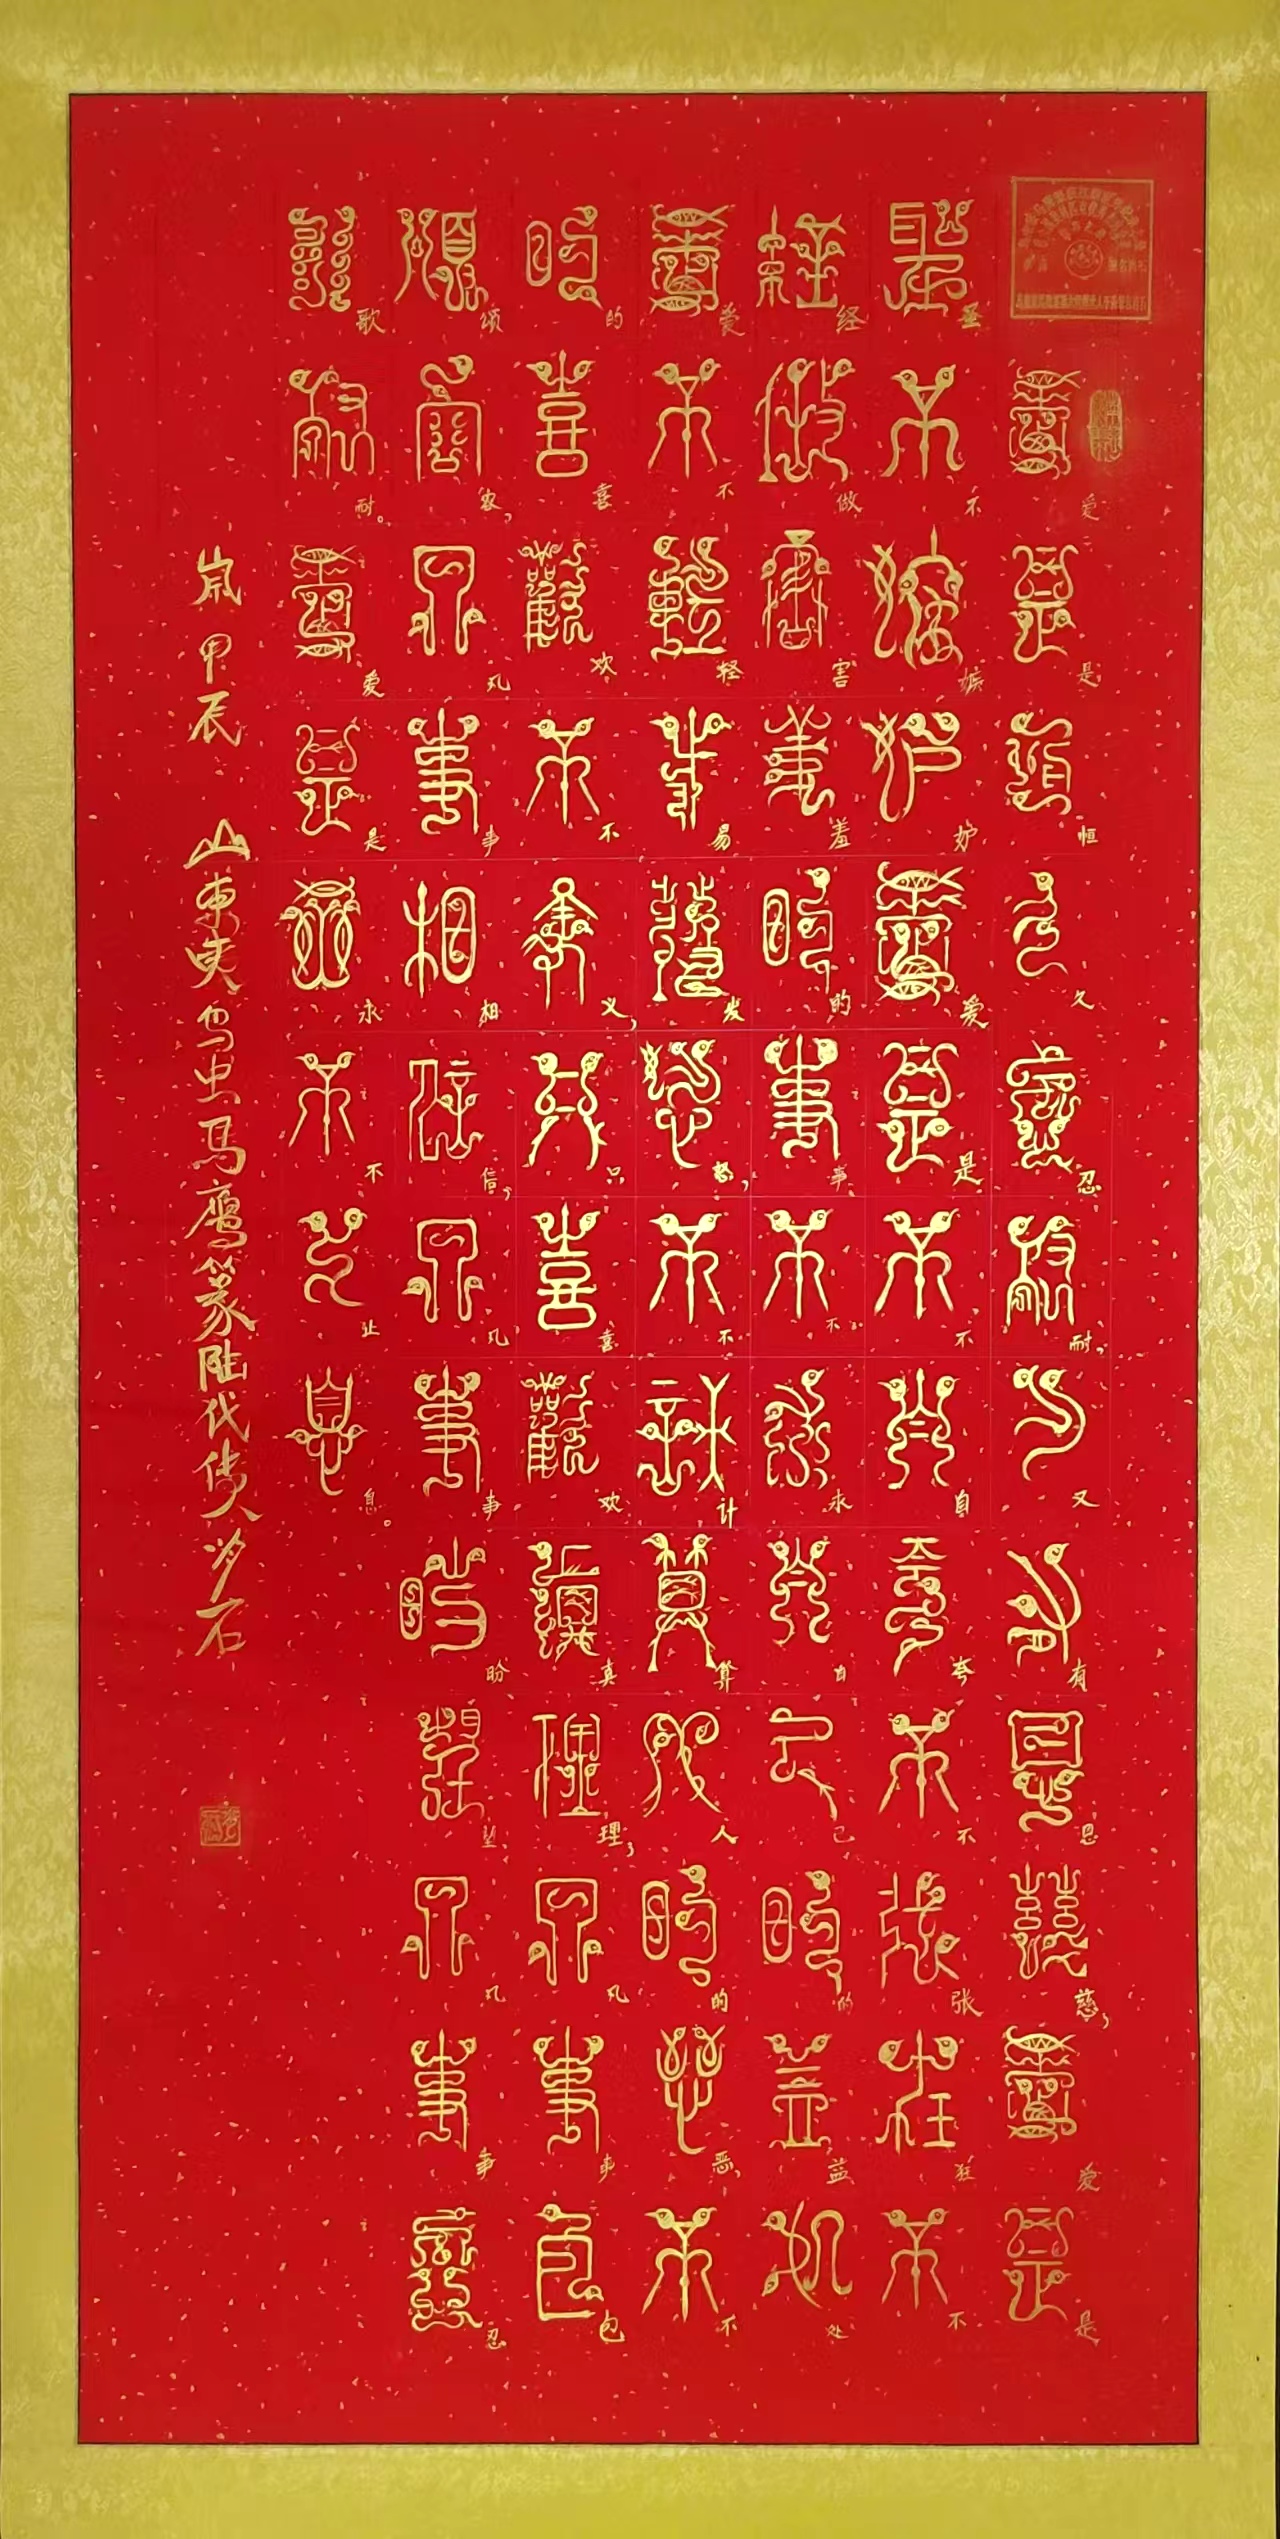 圣经爱的颂歌
爱是恒久忍耐,又有恩慈,爱是
不嫉妒爱是不自夸不张狂不
做害羞的事不。求自己的益处
不轻易发怒,不计算人的恶,不
喜欢不义,只喜欢真理,凡事包
容,凡事相信,凡事盼望凡事忍
耐。爱是永不止息。
甲辰 山东 鸟虫马鹰篆陆代传人 石